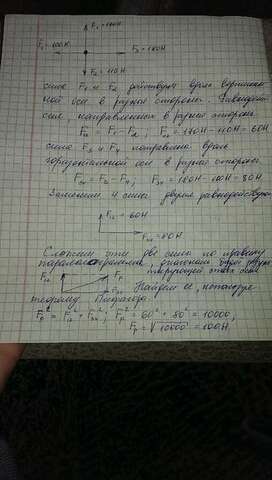 F₁ = 170Н
F₄ = 100Н F₃ = 180Н
F₂ = 110Н
силы F₁ и F₂ действуют вдоль вертикаль-
ной оси в разные стороны. Равнодейст.
сил, направленных в разные стороны
F₁₂ = F₁ - F₂ ; F₁₂ = 170Н - 110Н = 60Н
силы F₃ и F₄ направлены вдоль
горизонтальной оси в разные стороны.
F₃₄ = F₃ - F₄ ; F₃₄ = 180Н - 100Н = 80Н
Заменим 4 силы двумя равнодействующ.
F₁₂ = 60Н
F₃₄ = 80Н
Сложим эти две силы по правилу
параллелограмма, диагональ будет
этих сил
F₁₂ Fр
F₃₄ Найдем её, используя
теорему Пифагора.
Fр² = F₁₂² + F₃₄² ; Fр² = 60² + 80² = 10000,
Fр = √10000 = 100Н.